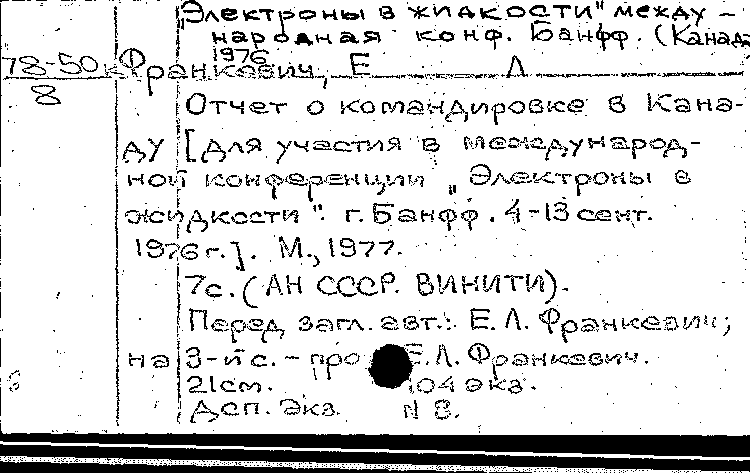 Электроны в жидкости" между-
народная конф. Банфф. (Канада
1976
78-50к Франкевич, Е Л
8
Отчет о командировке в Кана-
ду [для участия в международ-
ной конференции „Электроны в
жидкости". г. Банфф. 4-13 сент.
1976 г.]. М., 1977.
7с. (АН СССР. ВИНИТИ).
Перед загл. авт.: Е. Л. Франкевич;
на 3-й с. - про Е.Л. Франкевич.
21см. 104 экз.
Дсп. Экз. N 8.